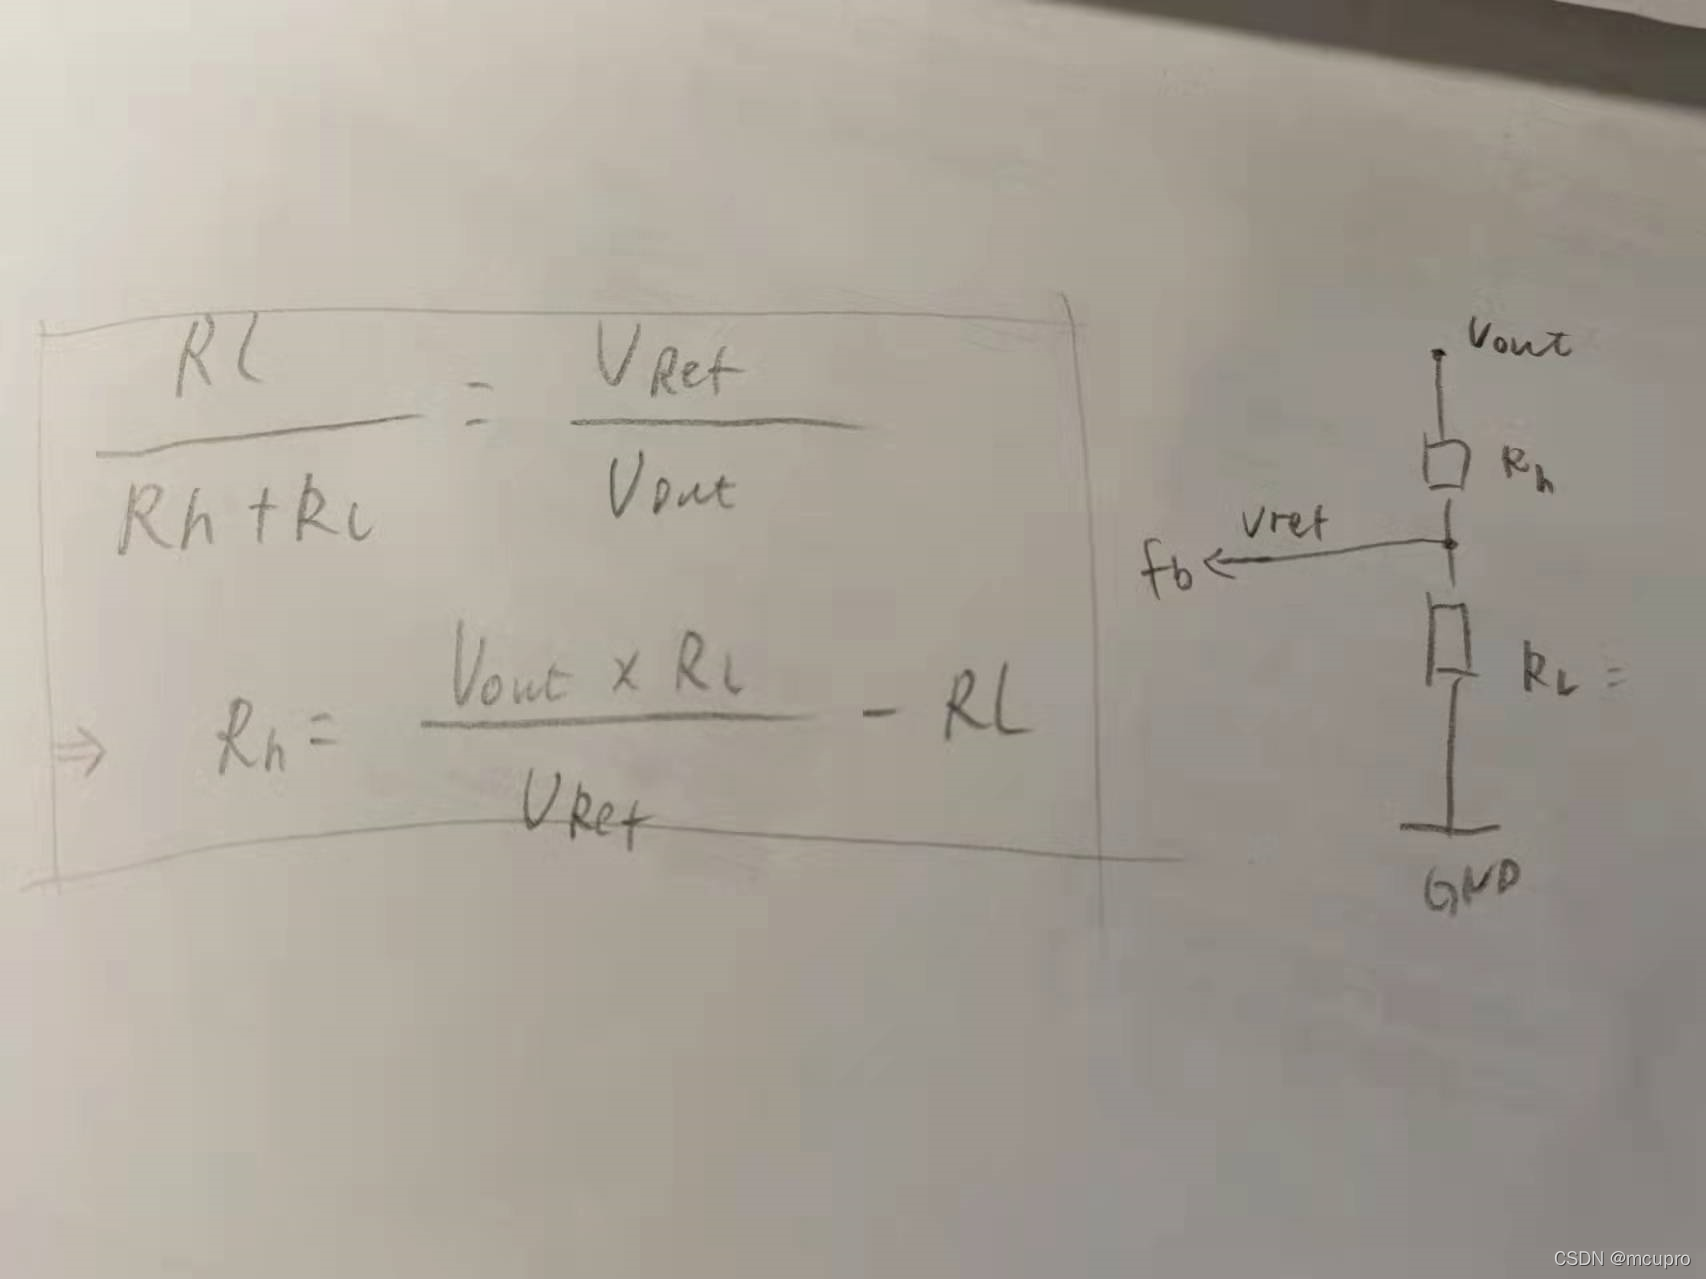 RL / Rh + RL = VRef / Vout
⇒ Rh = Vout × RL / VRef - RL
Vout
Rh
Vref
fb
RL =
GND
CSDN @mcupro